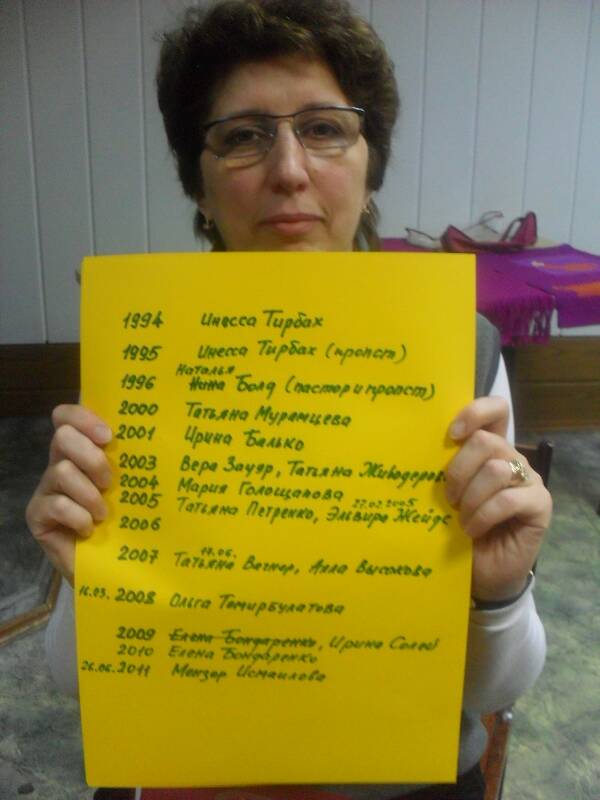 1994 Инесса Тирбах
1995 Инесса Тирбах (пропст)
Наталья
1996 Нина Болд (пастор и пропст)
2000 Татьяна Мурамцева
2001 Ирина Балько
2003 Вера Зауэр, Татьяна Живодеров
2004 Мария Голощапова
22.02.2005
2005 Татьяна Петренко, Эльвира Жейдс
2006
17.06.
2007 Татьяна Вагнер, Алла Высокова
16.03. 2008 Ольга Темирбулатова
2009 Елена Бондаренко, Ирина Солей
2010 Елена Бондаренко
26.06.2011 Мензер Исмаилова